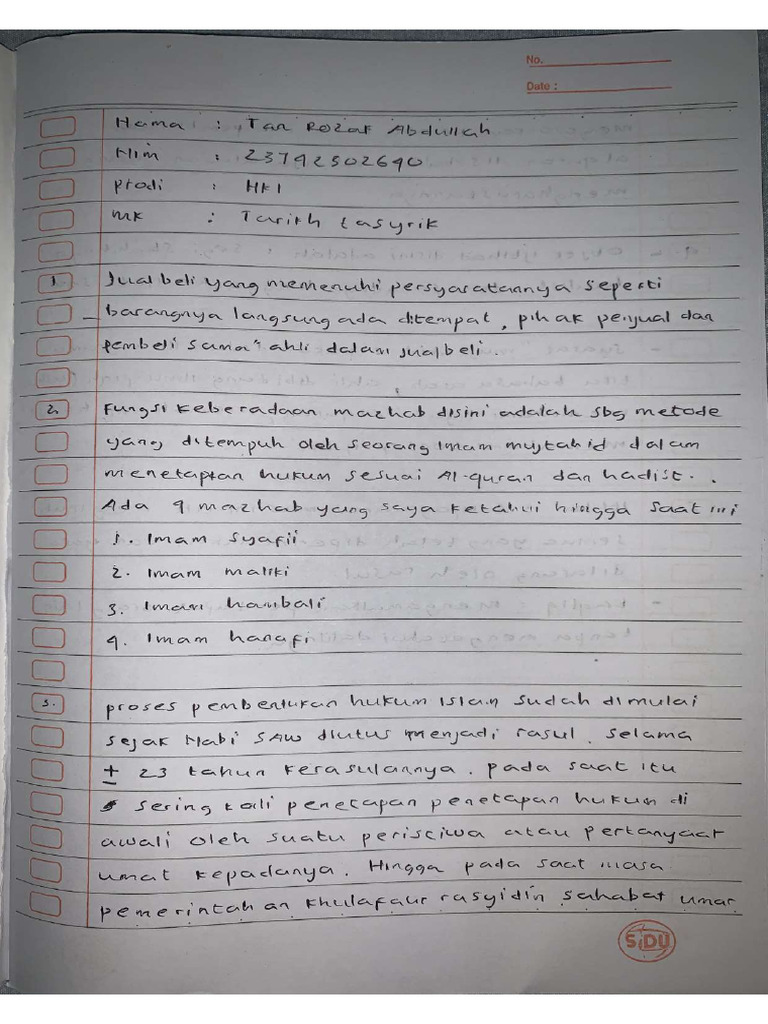 No.
Date :
Nama : Tan Rozak Abdullah
Nim : 23792502690
prodi : HKI
MK : Tarikh tasyrik
1. Jual beli yang memenuhi persyaratannya seperti
barangnya langsung ada ditempat, pihak penjual dan
pembeli sama" ahli dalam jualbeli.
2. Fungsi keberadaan mazhab disini adalah sbg metode
yang ditempuh oleh seorang imam mujtahid dalam
menetapkan hukum sesuai Al-quran dan hadist.
Ada 4 mazhab yang saya ketahui hingga saat ini
1. Imam syafii
2. Imam maliki
3. Imam hambali
4. Imam hanafi
3. proses pembentukan hukum islam sudah dimulai
sejak Nabi SAW diutus menjadi rasul. selama
± 23 tahun kerasulannya. pada saat itu
sering kali penetapan penetapan hukum di
awali oleh suatu peristiwa atau pertanyaan
umat kepadanya. Hingga pada saat masa
pemerintahan khulafaur rasyidin sahabat umar
SiDU